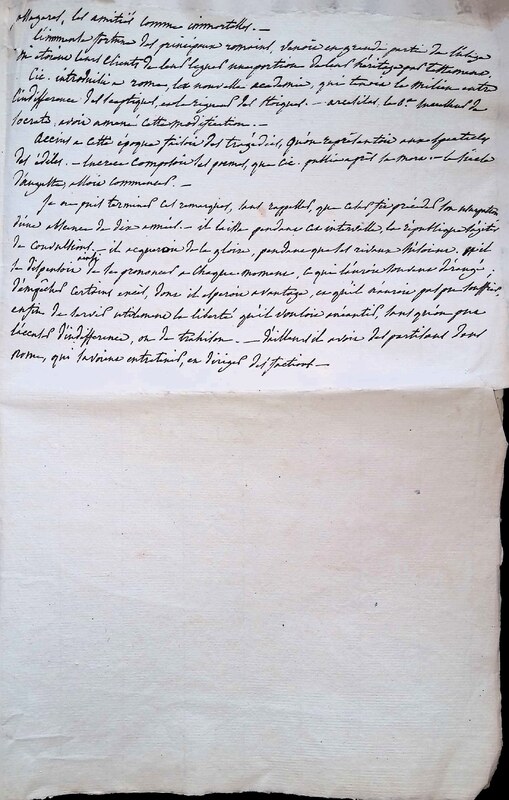 les amitiés comme immortelles. —
L'immense fortune des principaux romains, venoit en grande partie de l'usage
où étoient leurs clients de leur léguer une portion de leur héritage par testament.
Cic. introduisit à rome, la nouvelle académie, qui tenoit le milieu entre
l'indifference des sceptiques, et la rigueur des stoïques. — arcesilas, le
Socrate, avoit amené cette modification. —
Accius à cette époque faisoit des tragédies, qu'on représentoit aux spectacles
des édiles. — Lucrèce composoit ses poemes, que Cic. publia après sa mort. — le siècle
d'auguste, alloit commencer. —
Je ne puis terminer ces remarques, sans rappeller, que César fit précéder son usurpation
d'une absence de dix années. — il laissa pendant cet intervalle la république s'agiter
de convulsions. — il acqueroit de la gloire, pendant que ses rivaux
se dispensoit aussi de se prononcer à chaque moment, ce qui l'auroit souvent dérangé ;
d'empêcher certains excès, dont il espéroit avantage, ce qu'il n'auroit pas pu souffrir,
enfin de servir utilement la liberté qu'il vouloit anéantir, sans qu'on put
l'accuser d'indifference, ou de trahison. — D'ailleurs il avoit des partisans dans
rome, qui savoient entretenir, et diriger des factions. —